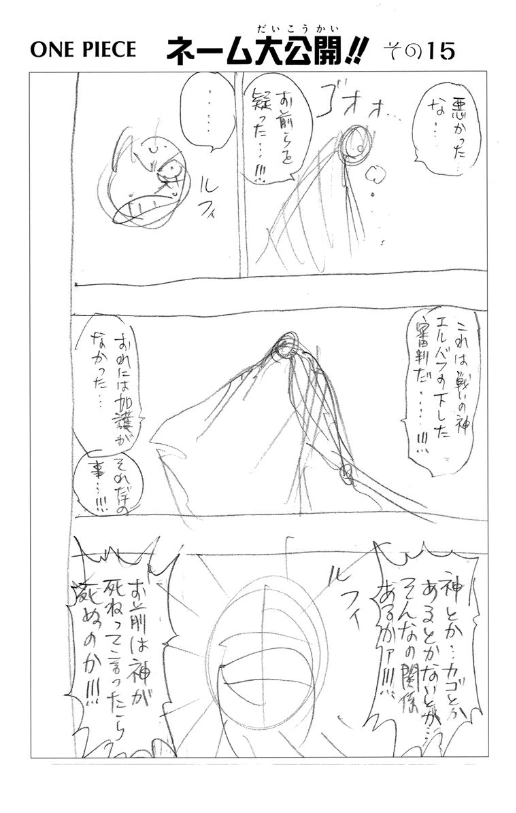 ONE PIECE ネーム大公開!! その15
だいこうかい
悪かった
な…
ゴオォ…
お前らを
疑った…!!!
‥‥
ルフィ
これは戦いの神
エルバフの下した
審判だ‥‥!!!
おれには加護が
なかった…
それだけの
事…!!!
神とか…カゴとか
あるとかないとか…
そんなの関係
あるかァ!!!
ルフィ
お前は神が
死ねって言ったら
死ぬのか!!!